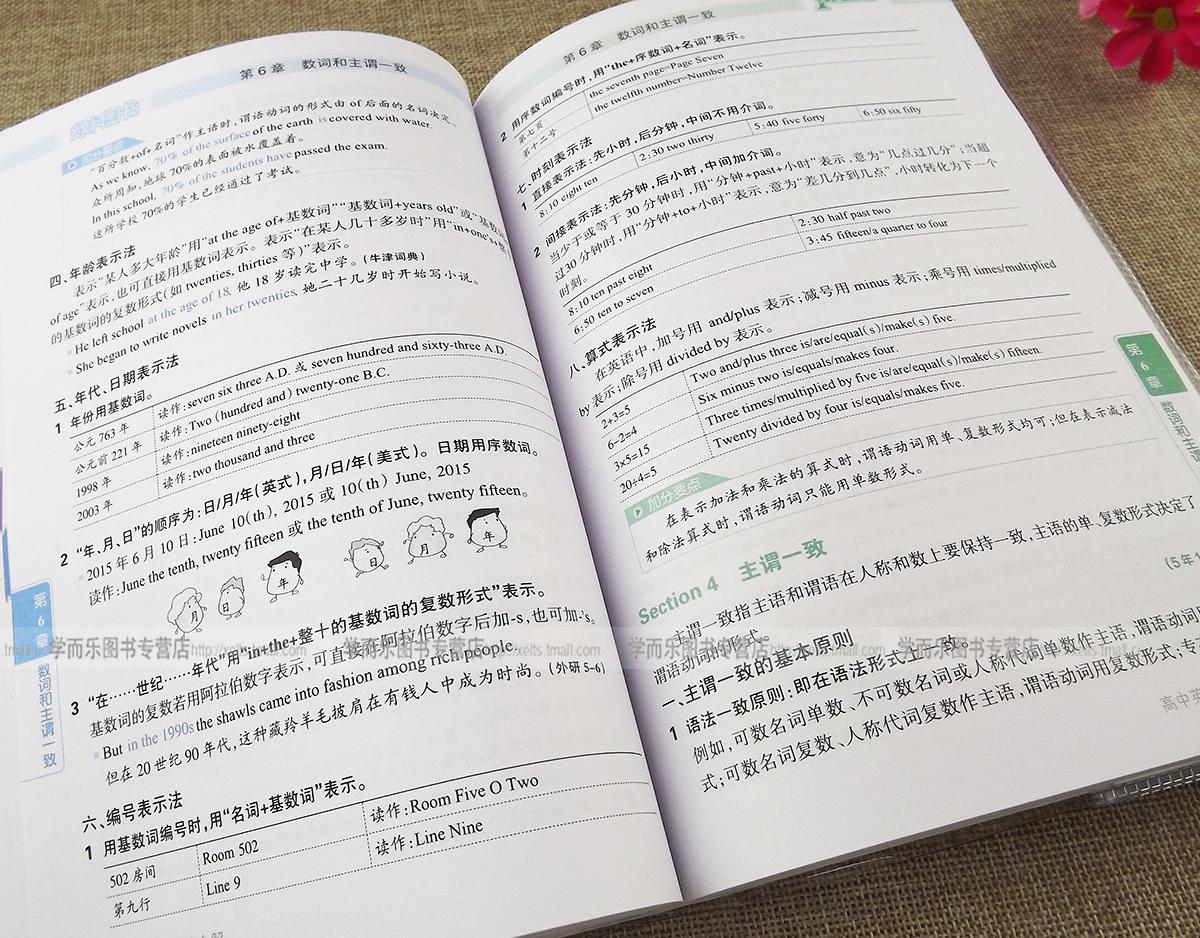 第6章 数词和主谓一致
绿卡图书
加分要点
“百分数+of+名词”作主语时,谓语动词的形式由of后面的名词决定。
As we know, 70% of the surface of the earth is covered with water.
众所周知,地球70%的表面被水覆盖着。
In this school, 70% of the students have passed the exam.
这所学校70%的学生已经通过了考试。
四、年龄表示法
表示“某人多大年龄”用“at the age of+基数词”“基数词+years old”或“基数词
of age”表示,也可直接用基数词表示。表示“在某人几十多岁时”用“in+one's+整
的基数词的复数形式(如 twenties, thirties 等)”表示。
He left school at the age of 18. 他18岁读完中学。(牛津词典)
She began to write novels in her twenties. 她二十几岁时开始写小说。
五、年代、日期表示法
1 年份用基数词。
公元763年 读作:seven six three A.D. 或 seven hundred and sixty-three A.D.
公元前221年 读作:Two (hundred and) twenty-one B.C.
1998年 读作:nineteen ninety-eight
2003年 读作:two thousand and three
2 “年、月、日”的顺序为:日/月/年(英式),月/日/年(美式)。日期用序数词。
2015年6月10日:June 10(th), 2015 或 10(th) June, 2015
读作:June the tenth, twenty fifteen 或 the tenth of June, twenty fifteen。
月 日 年 日 月 年
3 “在……世纪……年代”用“in+the+整十的基数词的复数形式”表示。
基数词的复数若用阿拉伯数字表示,可直接在阿拉伯数字后加-s,也可加-'s。
But in the 1990s the shawls came into fashion among rich people.
但在20世纪90年代,这种藏羚羊毛披肩在有钱人中成为时尚。(外研5-6)
六、编号表示法
1 用基数词编号时,用“名词+基数词”表示。
502房间 Room 502 读作:Room Five O Two
第九行 Line 9 读作:Line Nine
第6章 数词和主谓一致
第6章 数词和主谓一致
2 用序数词编号时,用“the+序数词+名词”表示。
第七页 the seventh page=Page Seven
第十二号 the twelfth number=Number Twelve
七、时刻表示法
1 直接表示法:先小时,后分钟,中间不用介词。
8:10 eight ten 2:30 two thirty 5:40 five forty 6:50 six fifty
2 间接表示法:先分钟,后小时,中间加介词。
当少于或等于30分钟时,用“分钟+past+小时”表示,意为“几点过几分”;当超
过30分钟时,用“分钟+to+小时”表示,意为“差几分到几点”,小时转化为下一个
时刻。
8:10 ten past eight 2:30 half past two
6:50 ten to seven 3:45 fifteen/a quarter to four
八、算式表示法
在英语中,加号用 and/plus 表示;减号用 minus 表示;乘号用 times/multiplied
by 表示;除号用 divided by 表示。
2+3=5 Two and/plus three is/are/equal(s)/make(s) five.
6-2=4 Six minus two is/equals/makes four.
3×5=15 Three times/multiplied by five is/are/equal(s)/make(s) fifteen.
20÷4=5 Twenty divided by four is/equals/makes five.
加分要点
在表示加法和乘法的算式时,谓语动词用单、复数形式均可;但在表示减法
和除法算式时,谓语动词只能用单数形式。
Section 4 主谓一致
(5年1
主谓一致指主语和谓语在人称和数上要保持一致,主语的单、复数形式决定了
谓语动词的形式。
一、主谓一致的基本原则
1 语法一致原则:即在语法形式上一致
例如,可数名词单数、不可数名词或人称代词单数作主语,谓语动词
式;可数名词复数、人称代词复数作主语,谓语动词用复数形式;专
第6章 数词和主谓
高中英
学而乐图书专营店 http://xelts.tmall.com
学而乐图书专营店 http://xelts.tmall.com
学而乐图书专营店 http://xelts.tmall.com
学而乐图书专营店